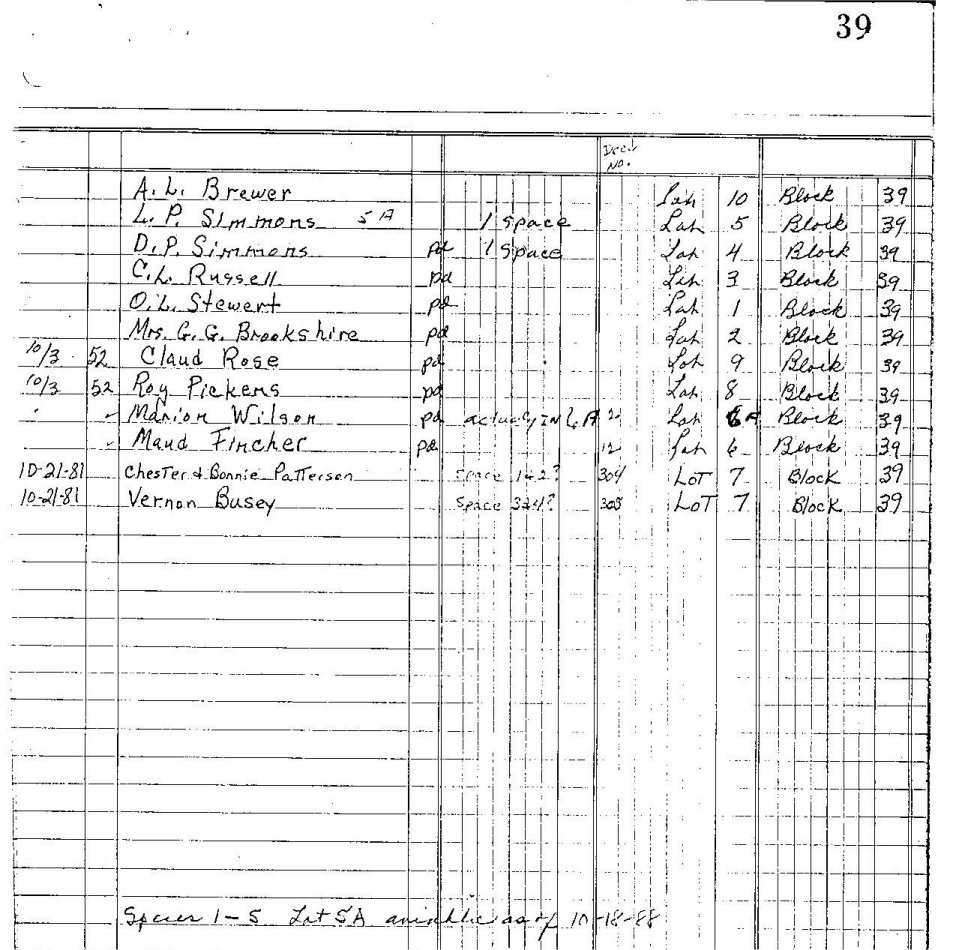 39
Deed
No.
A. L. Brewer Lot 10 Block 39
L. P. Simmons 5 A 1 space Lot 5 Block 39
D. P. Simmons pd 1 space Lot 4 Block 39
C. L. Russell pd Lot 3 Block 39
O. L. Stewert pd Lot 1 Block 39
Mrs. G. G. Brookshire pd Lot 2 Block 39
10/3 52 Claud Rose pd Lot 9 Block 39
10/3 52 Roy Pickens pd Lot 8 Block 39
" Marion Wilson pd actually in 6 A Lot 6A Block 39
" Maud Fincher pd 12 Lot 6 Block 39
10-21-81 Chester & Bonnie Patterson Space 1&2? 304 LoT 7 Block 39
10-21-81 Vernon Busey Space 3&4? 305 LoT 7 Block 39
Spaces 1-5 Lot 5A available as of 10-18-88